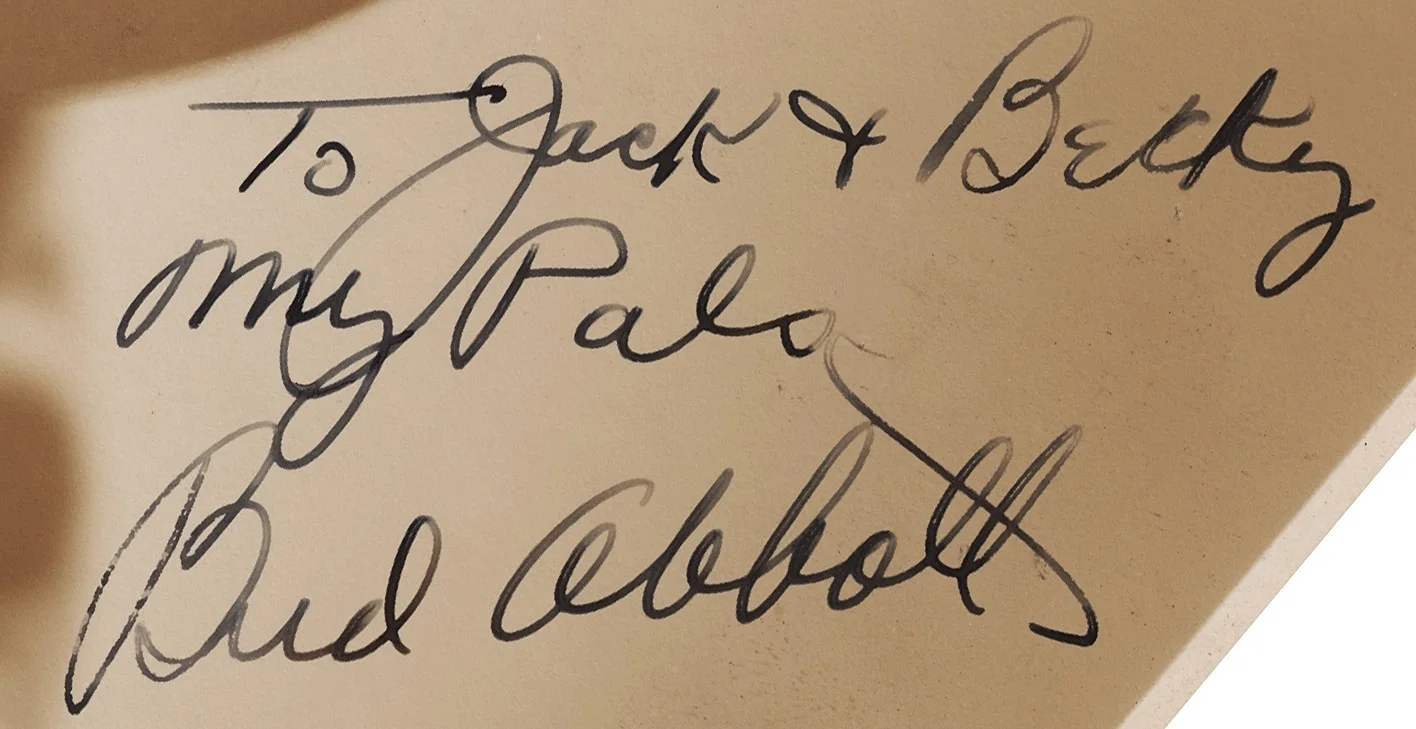 To Jack & Becky
My Pals
Bud Abbott